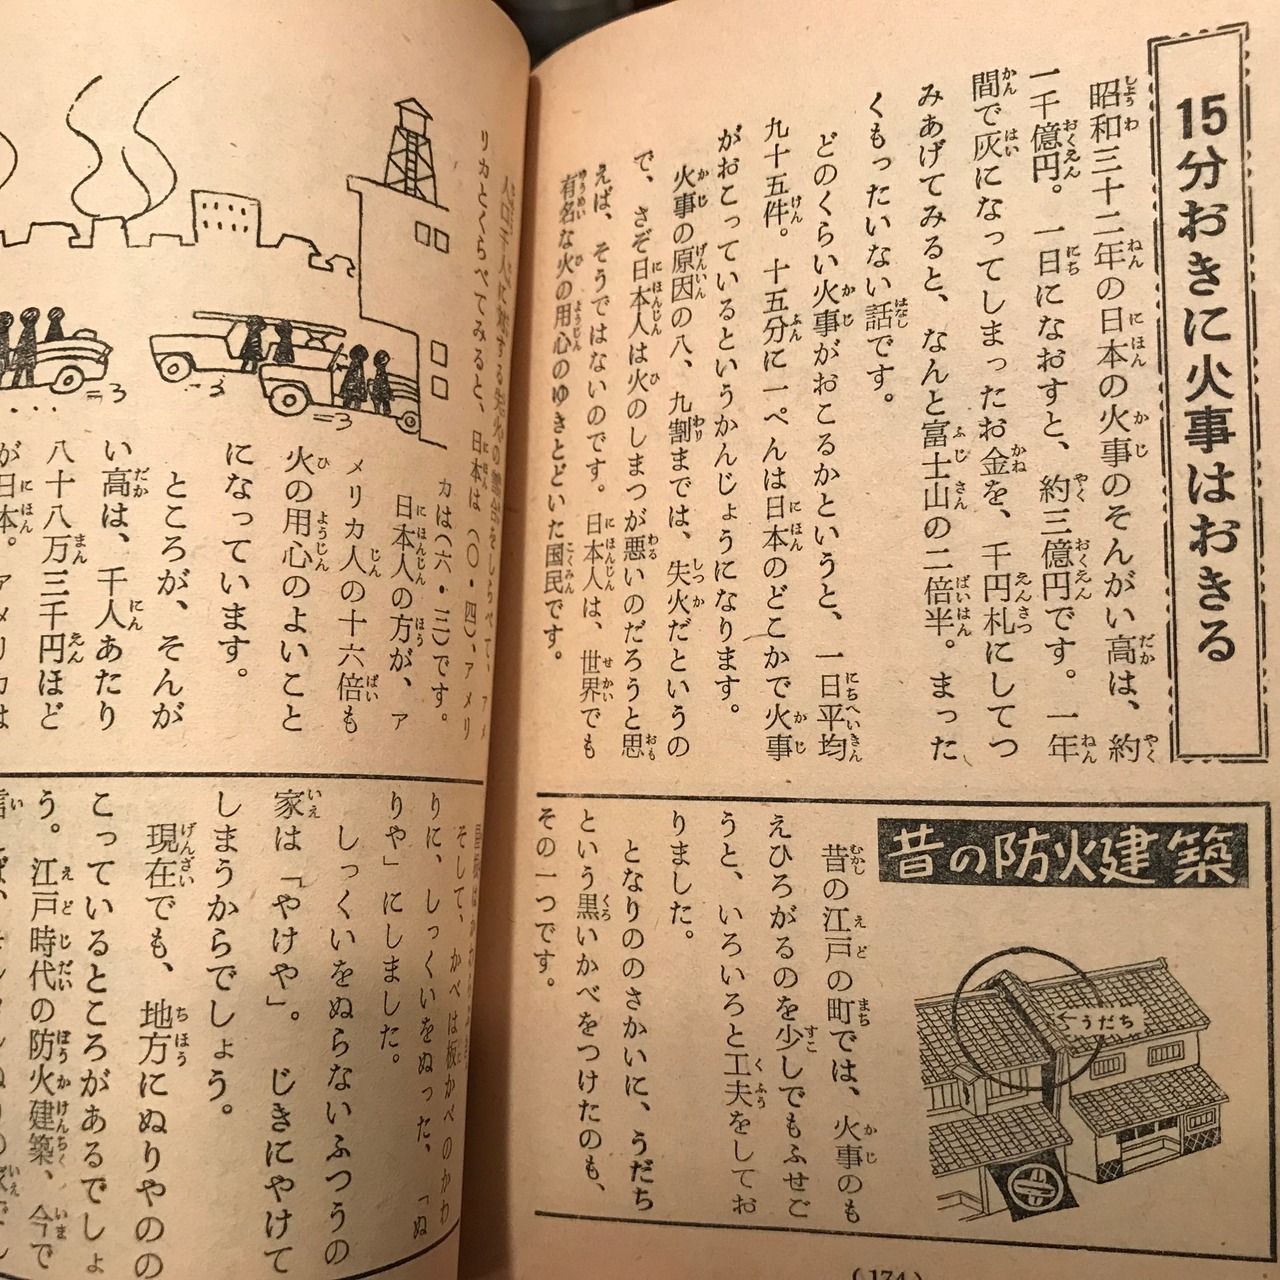 15分おきに火事はおきる
昭和三十二年の日本の火事のそんがい高は、約
一千億円。一日になおすと、約三億円です。一年
間で灰になってしまったお金を、千円札にしてつ
みあげてみると、なんと富士山の二倍半。まった
くもったいない話です。
どのくらい火事がおこるかというと、一日平均
九十五件。十五分に一ぺんは日本のどこかで火事
がおこっているというかんじょうになります。
火事の原因の八、九割までは、失火だというの
で、さぞ日本人は火のしまつが悪いのだろうと思
えば、そうではないのです。日本人は、世界でも
有名な火の用心のゆきとどいた国民です。
昔の防火建築
うだち
昔の江戸の町では、火事のも
えひろがるのを少しでもふせご
うと、いろいろと工夫をしてお
りました。
となりのさかいに、うだち
という黒いかべをつけたのも、
その一つです。
(174)
人口千人に対する失火の割合をしらべて、アメ
リカとくらべてみると、日本は(〇・四)、アメリ
カは(六・三)です。
日本人の方が、ア
メリカ人の十六倍も
火の用心のよいこと
になっています。
ところが、そんが
い高は、千人あたり
八十八万三千円ほど
が日本。アメリカは
そして、かべは板かべのかわ
りに、しっくいをぬった、「ぬ
りや」にしました。
しっくいをぬらないふつうの
家は「やけや」。じきにやけて
しまうからでしょう。
現在でも、地方にぬりやのの
こっているところがあるでしょ
う。江戸時代の防火建築、今で